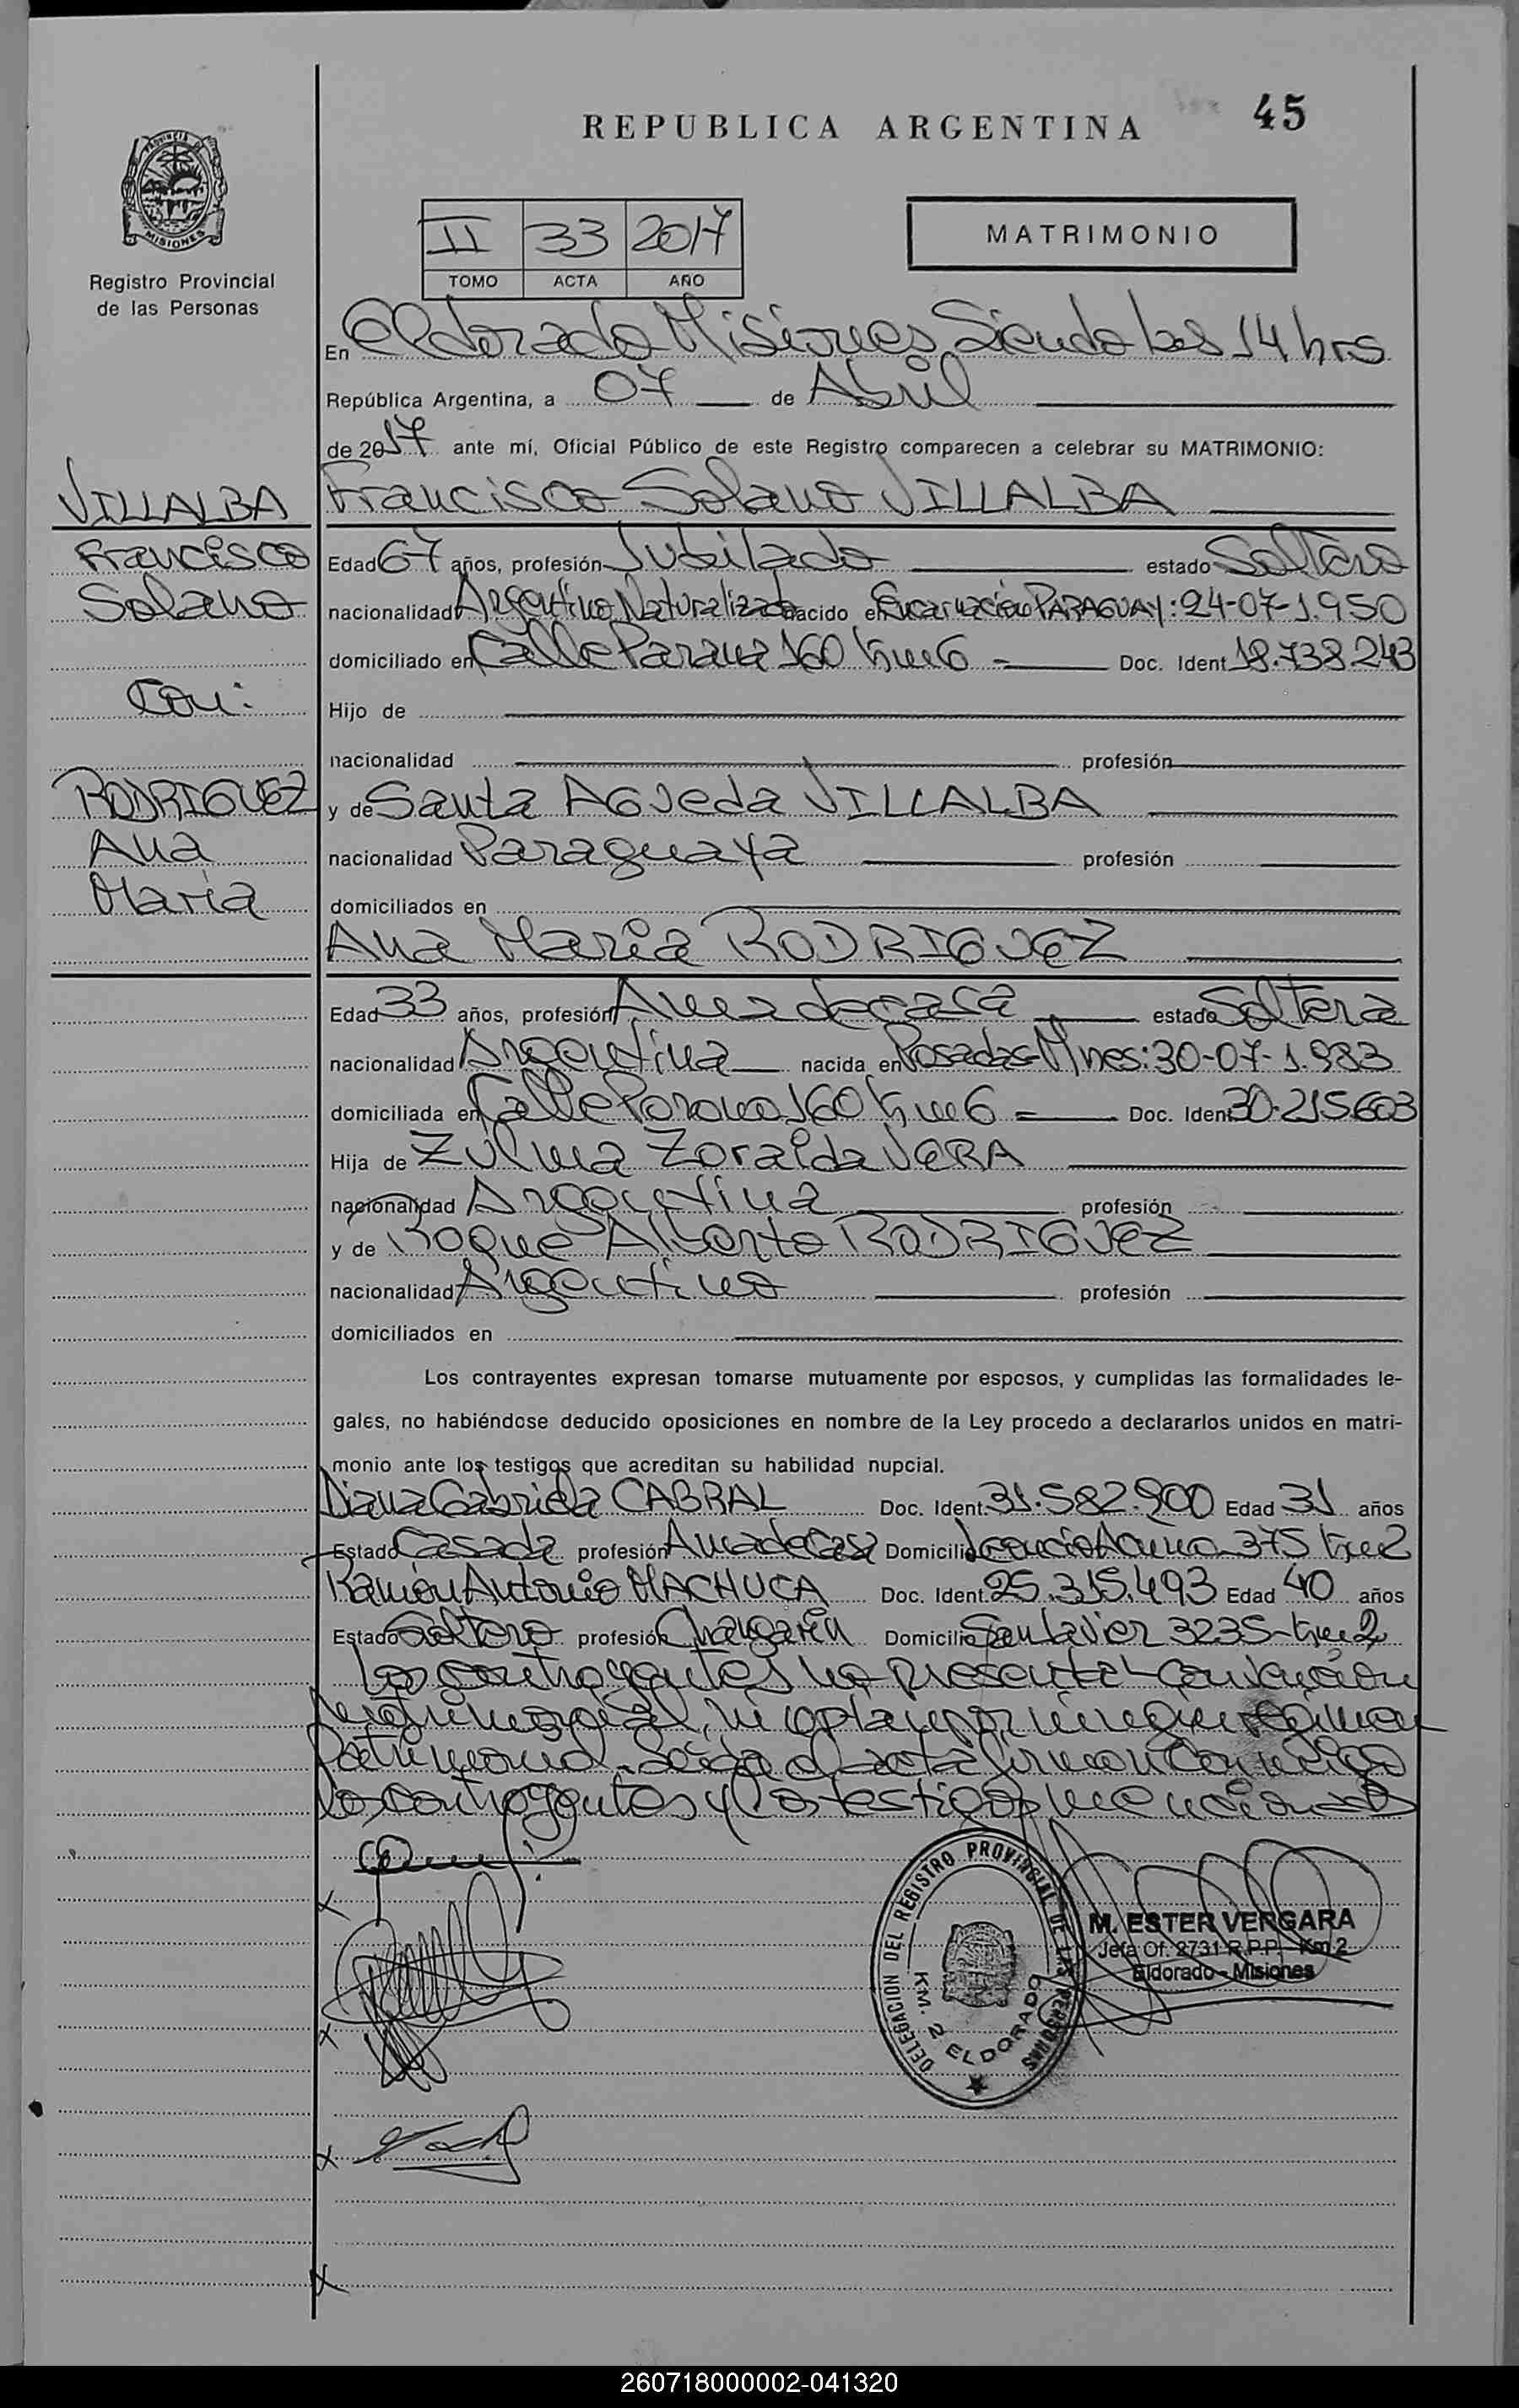 REPUBLICA ARGENTINA
45
PROVINCIA DE
MISIONES
Registro Provincial
de las Personas
II 33 2017
TOMO ACTA AÑO
MATRIMONIO
En Eldorado Misiones Siendo las 14 hrs
República Argentina, a 07 de Abril
de 2017 ante mí, Oficial Público de este Registro comparecen a celebrar su MATRIMONIO:
VILLALBA
Francisco
Solano
Con:
RODRIGUEZ
Ana
Maria
Francisco Solano VILLALBA
Edad 67 años, profesión Jubilado estado Soltero
nacionalidad Argentino Naturalizado nacido en Encarnación PARAGUAY: 24-07-1.950
domiciliado en Calle Parana 160 Km 6 Doc. Ident 18.738.243
Hijo de
nacionalidad profesión
y de Santa AGUeda VILLALBA
nacionalidad Paraguaya profesión
domiciliados en
Ana Maria RODRIGUEZ
Edad 33 años, profesión Ama de casa estado Soltera
nacionalidad Argentina nacida en Posadas-Mnes: 30-07-1.983
domiciliada en Calle Parana 160 Km 6 Doc. Ident 30.215.603
Hija de Zulma Zoraida VERA
nacionalidad Argentina profesión
y de Roque Alberto RODRIGUEZ
nacionalidad Argentino profesión
domiciliados en
Los contrayentes expresan tomarse mutuamente por esposos, y cumplidas las formalidades le-
gales, no habiéndose deducido oposiciones en nombre de la Ley procedo a declararlos unidos en matri-
monio ante los testigos que acreditan su habilidad nupcial.
Diana Gabriela CABRAL Doc. Ident. 31.582.900 Edad 31 años
Estado Casada profesión Ama de Casa Domicilio 375 Km 2
Ramón Antonio MACHUCA Doc. Ident. 25.315.493 Edad 40 años
Estado Soltero profesión Changarin Domicilio San Javier 3235-Km 2
Los contrayentes no presentan Convención
Matrimonial, ni optan por ningun régimen
Patrimonial. Leída el acta firman conmigo
los contrayentes y los testigos mencionados
DELEGACION DEL REGISTRO PROVINCIAL DE LAS PERSONAS
KM. 2 ELDORADO
M. ESTER VERGARA
Jefa Of. 2731 R.P.P. Km 2
Eldorado - Misiones
260718000002-041320